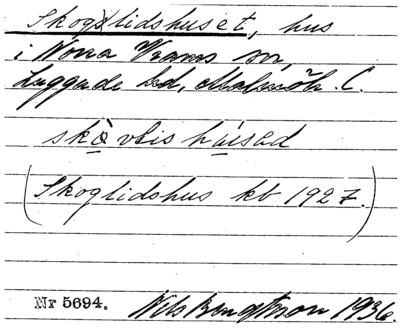 Skoglidshuset, hus
i Norra Vrams sn,
Luggude hd, Malmöh. L.
skò vlis húised
(Skoglidshus kb 1927.)
Nr 5694. Nils Bengtsson 1936.